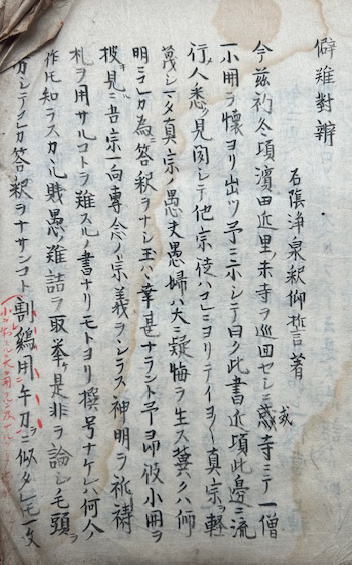 僻難對辨
石陰淨泉釈仰誓著
今茲初冬頃濱田近里ノ末寺ヲ巡回セシニ或寺ニテ一僧
一小冊ヲ懐ヨリ出ツ予ニ示シテ曰ク此書近頃此邊ニ流
行人悉ク見聞シテ他宗徒ハコレニヨリテイヨ〱真宗ヲ軽
蔑シマタ真宗ノ愚夫愚婦ハ大ニ疑悔ヲ生ス冀クハ師
明ニコレカ為答釈ヲナシ玉ハ幸甚ナラント予即彼小冊ヲ
披見ニ吾宗一向專念ノ宗義ヲシラス神明ヲ祈禱
札ヲ用サルコトヲ難スルノ書ナリモトヨリ撰号ナケレハ何人ノ
作ト知ラスカヽル賎愚難詰ヲ取挙ケ是非ヲ論シ毛頭ヲ
カシテクカ答釈ヲナサンコト割鶏用牛刀ニ似タレトモ